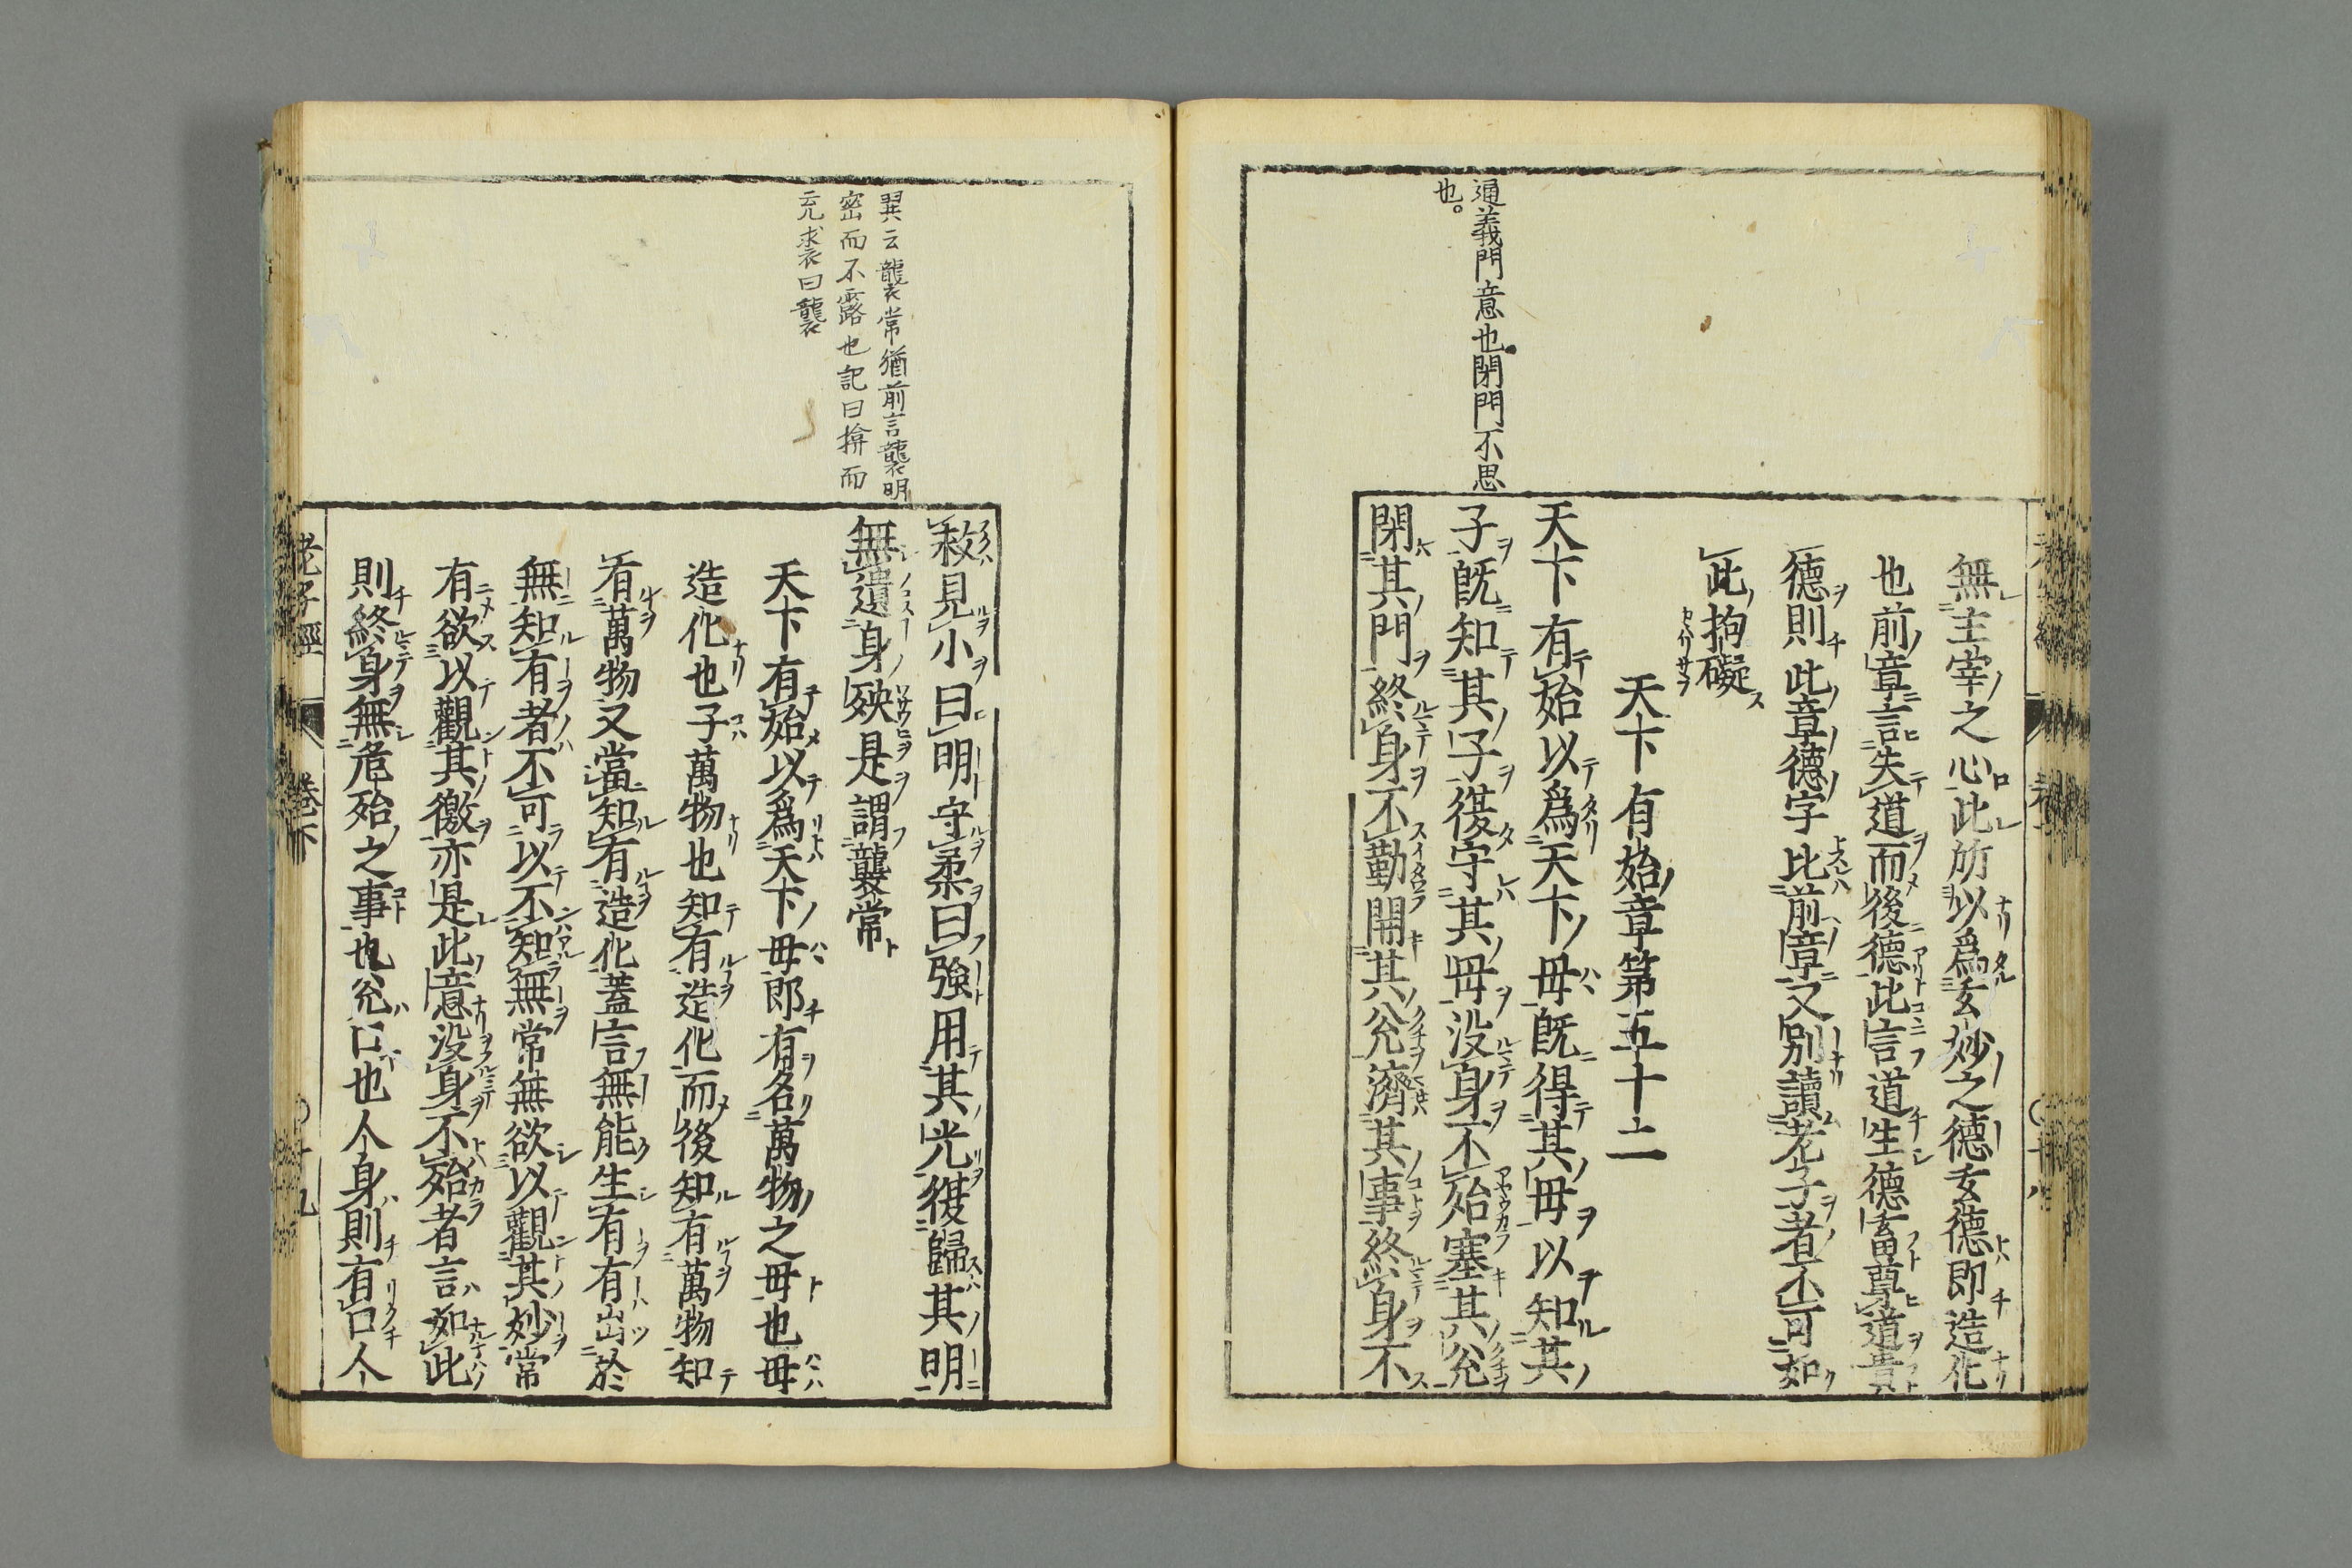 通義門意也閉門不思
也。
無主宰之心此所以爲玄妙之德玄德即造化
也前章言失道而後德此言道生德畜尊道貴
德則此章德字比前章又別讀老子者不可如
此拘礙
天下有始章第五十二
天下有始以爲天下母既得其母以知其
子既知其子復守其母没身不殆塞其兊
閉其門終身不勤開其兊濟其事終身不
巽云襲常猶前言襲明
密而不露也記曰揜而
充裘曰襲
救見小曰明守柔曰強用其光復歸其明
無遺身殃是謂襲常
天下有始以爲天下母郎有名萬物之母也母
造化也子萬物也知有造化而後知有萬物知
有萬物又當知有造化蓋言無能生有有出於
無知有者不可以不知無常無欲以觀其妙常
有欲以觀其徼亦是此意没身不殆者言如此
則終身無危殆之事也兊口也人身則有口人
老子經 卷下 〇十九